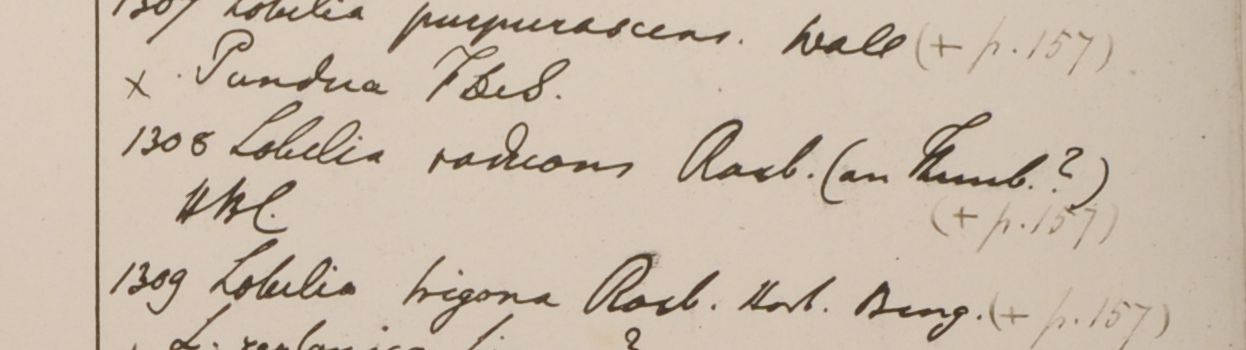 1307 Lobelia purpurascens. Wall (+ p. 157)
x Pundua FBeS.
1308 Lobelia radicans Roxb. (an Thunb.?)
HBC. (+ p. 157)
1309 Lobelia trigona Roxb. Herb. Beng. (+ p. 157)
L. zeylanica ?